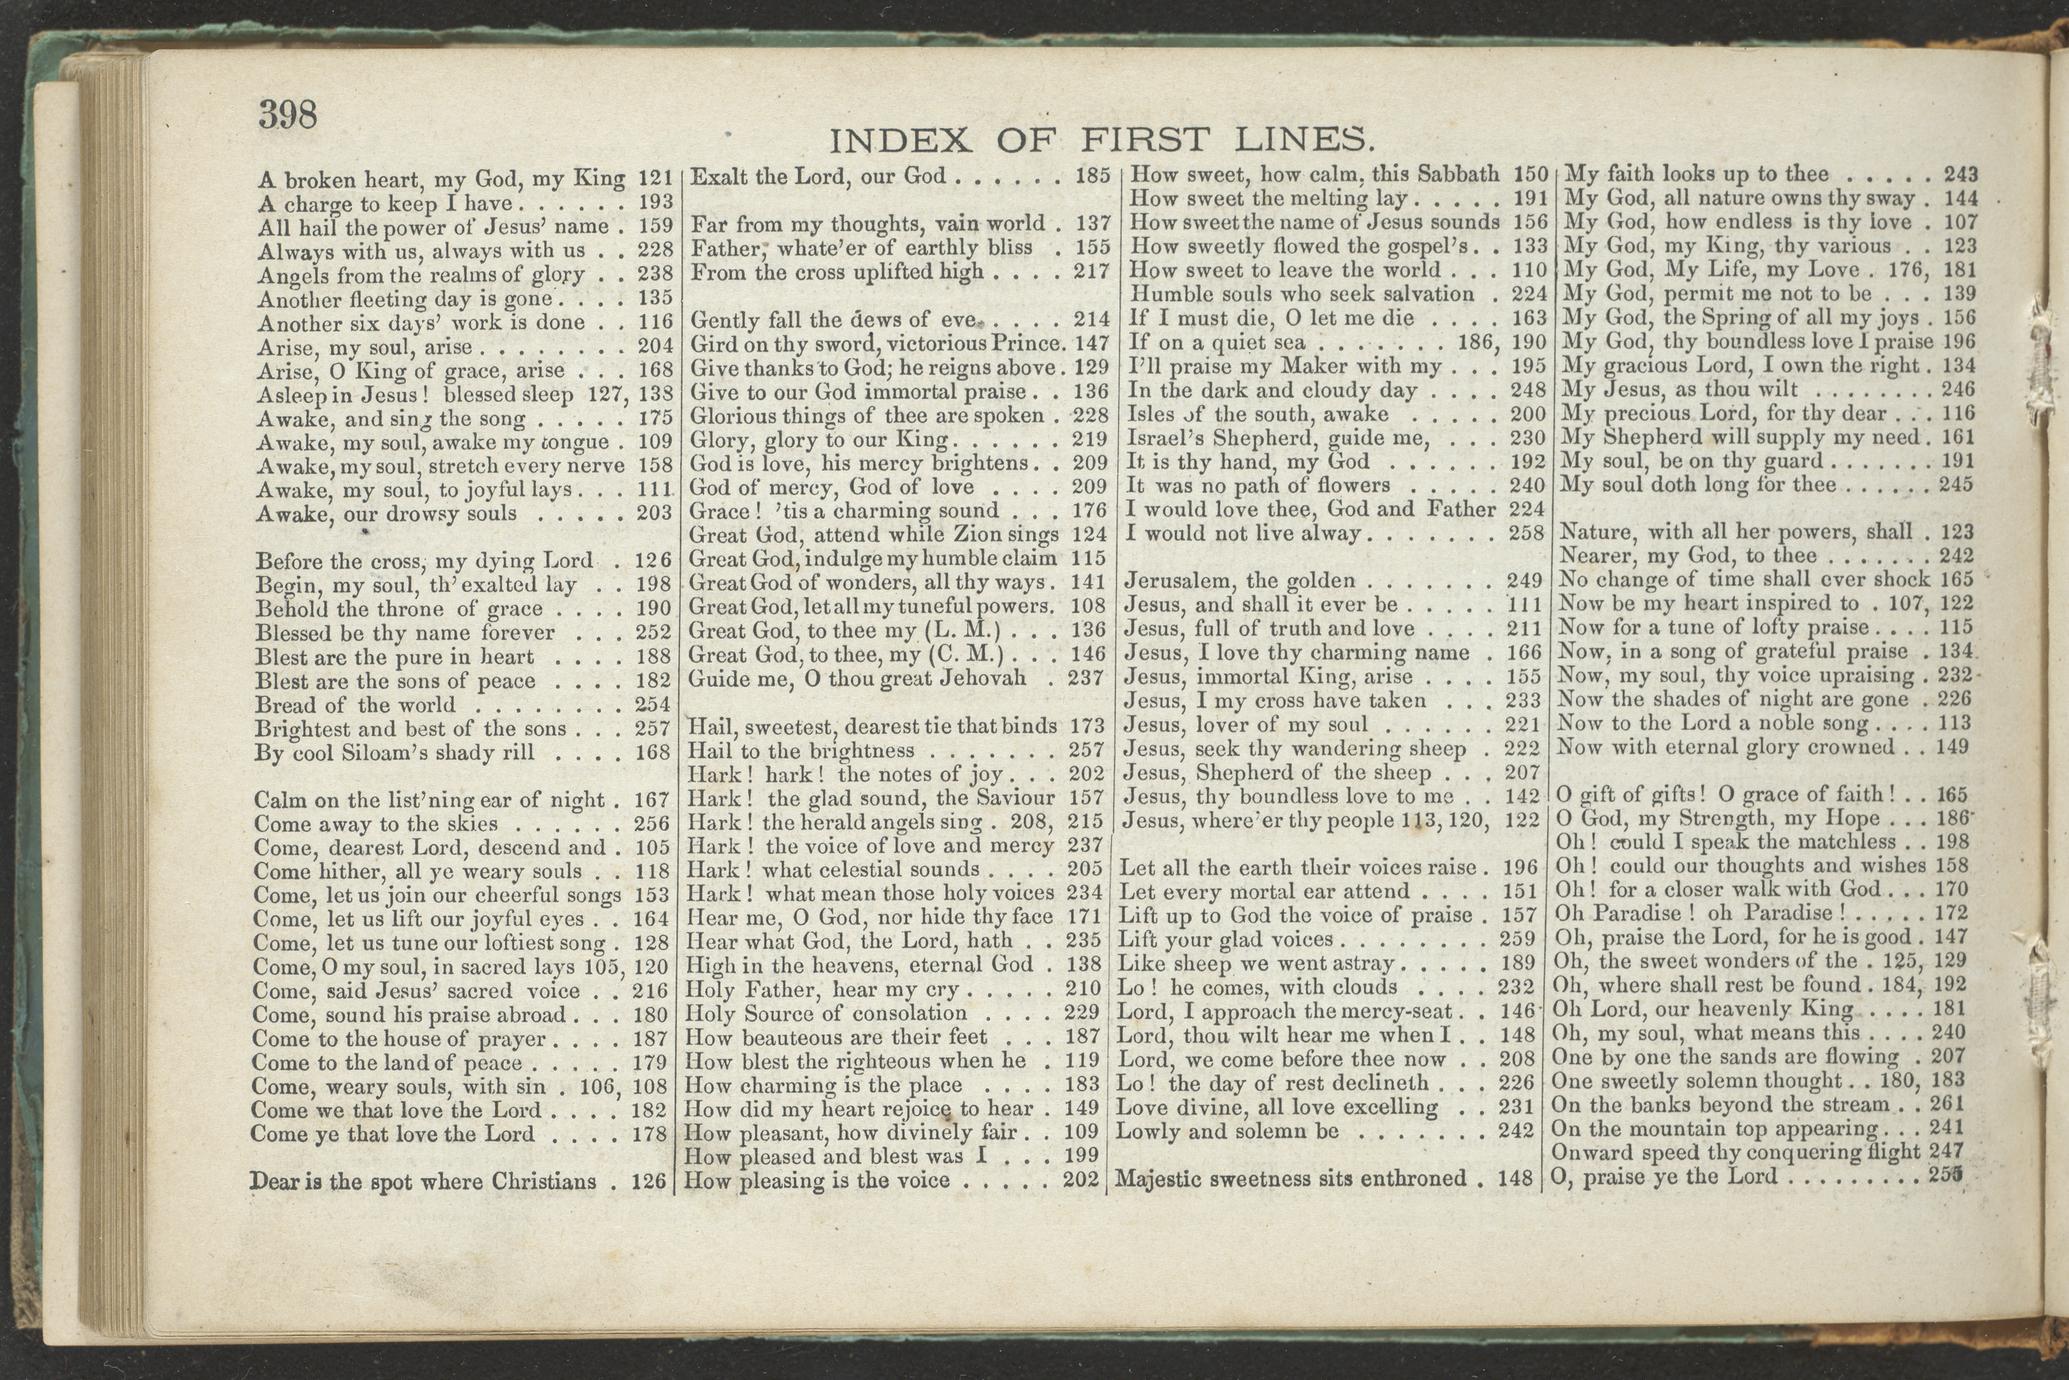 398
INDEX OF FIRST LINES.
A broken heart, my God, my King 121
A charge to keep I have . . . . . . 193
All hail the power of Jesus' name . 159
Always with us, always with us . . 228
Angels from the realms of glory . . 238
Another fleeting day is gone . . . . 135
Another six days' work is done . . 116
Arise, my soul, arise . . . . . . . . 204
Arise, O King of grace, arise . . . 168
Asleep in Jesus ! blessed sleep 127, 138
Awake, and sing the song . . . . . 175
Awake, my soul, awake my tongue . 109
Awake, my soul, stretch every nerve 158
Awake, my soul, to joyful lays . . . 111
Awake, our drowsy souls . . . . . 203
Before the cross, my dying Lord . 126
Begin, my soul, th' exalted lay . . 198
Behold the throne of grace . . . . 190
Blessed be thy name forever . . . 252
Blest are the pure in heart . . . . 188
Blest are the sons of peace . . . . 182
Bread of the world . . . . . . . . 254
Brightest and best of the sons . . . 257
By cool Siloam's shady rill . . . . 168
Calm on the list'ning ear of night . 167
Come away to the skies . . . . . . 256
Come, dearest Lord, descend and . 105
Come hither, all ye weary souls . . 118
Come, let us join our cheerful songs 153
Come, let us lift our joyful eyes . . 164
Come, let us tune our loftiest song . 128
Come, O my soul, in sacred lays 105, 120
Come, said Jesus' sacred voice . . 216
Come, sound his praise abroad . . . 180
Come to the house of prayer . . . . 187
Come to the land of peace . . . . . 179
Come, weary souls, with sin . 106, 108
Come we that love the Lord . . . . 182
Come ye that love the Lord . . . . 178
Dear is the spot where Christians . 126
Exalt the Lord, our God . . . . . . 185
Far from my thoughts, vain world . 137
Father, whate'er of earthly bliss . 155
From the cross uplifted high . . . . 217
Gently fall the dews of eve . . . . . 214
Gird on thy sword, victorious Prince. 147
Give thanks to God; he reigns above . 129
Give to our God immortal praise . . 136
Glorious things of thee are spoken . 228
Glory, glory to our King . . . . . . 219
God is love, his mercy brightens . . 209
God of mercy, God of love . . . . 209
Grace ! 'tis a charming sound . . . 176
Great God, attend while Zion sings 124
Great God, indulge my humble claim 115
Great God of wonders, all thy ways . 141
Great God, let all my tuneful powers. 108
Great God, to thee my (L. M.) . . . 136
Great God, to thee, my (C. M.) . . . 146
Guide me, O thou great Jehovah . 237
Hail, sweetest, dearest tie that binds 173
Hail to the brightness . . . . . . . 257
Hark ! hark ! the notes of joy . . . 202
Hark ! the glad sound, the Saviour 157
Hark ! the herald angels sing . 208, 215
Hark ! the voice of love and mercy 237
Hark ! what celestial sounds . . . . 205
Hark ! what mean those holy voices 234
Hear me, O God, nor hide thy face 171
Hear what God, the Lord, hath . . 235
High in the heavens, eternal God . 138
Holy Father, hear my cry . . . . . 210
Holy Source of consolation . . . . 229
How beauteous are their feet . . . 187
How blest the righteous when he . 119
How charming is the place . . . . 183
How did my heart rejoice to hear . 149
How pleasant, how divinely fair . . 109
How pleased and blest was I . . . 199
How pleasing is the voice . . . . . 202
How sweet, how calm, this Sabbath 150
How sweet the melting lay . . . . . 191
How sweet the name of Jesus sounds 156
How sweetly flowed the gospel's . . 133
How sweet to leave the world . . . 110
Humble souls who seek salvation . 224
If I must die, O let me die . . . . 163
If on a quiet sea . . . . . . . 186, 190
I'll praise my Maker with my . . . 195
In the dark and cloudy day . . . . 248
Isles of the south, awake . . . . . 200
Israel's Shepherd, guide me, . . . 230
It is thy hand, my God . . . . . . 192
It was no path of flowers . . . . . 240
I would love thee, God and Father 224
I would not live alway . . . . . . . 258
Jerusalem, the golden . . . . . . . 249
Jesus, and shall it ever be . . . . . 111
Jesus, full of truth and love . . . . 211
Jesus, I love thy charming name . 166
Jesus, immortal King, arise . . . . 155
Jesus, I my cross have taken . . . 233
Jesus, lover of my soul . . . . . . 221
Jesus, seek thy wandering sheep . 222
Jesus, Shepherd of the sheep . . . 207
Jesus, thy boundless love to me . . 142
Jesus, where'er thy people 113, 120, 122
Let all the earth their voices raise . 196
Let every mortal ear attend . . . . 151
Lift up to God the voice of praise . 157
Lift your glad voices . . . . . . . . 259
Like sheep we went astray . . . . . 189
Lo ! he comes, with clouds . . . . 232
Lord, I approach the mercy-seat . . 146
Lord, thou wilt hear me when I . . 148
Lord, we come before thee now . . 208
Lo ! the day of rest declineth . . . 226
Love divine, all love excelling . . 231
Lowly and solemn be . . . . . . . 242
Majestic sweetness sits enthroned . 148
My faith looks up to thee . . . . . 243
My God, all nature owns thy sway . 144
My God, how endless is thy love . 107
My God, my King, thy various . . 123
My God, My Life, my Love . 176, 181
My God, permit me not to be . . . 139
My God, the Spring of all my joys . 156
My God, thy boundless love I praise 196
My gracious Lord, I own the right . 134
My Jesus, as thou wilt . . . . . . . . 246
My precious Lord, for thy dear . . . 116
My Shepherd will supply my need . 161
My soul, be on thy guard . . . . . . . 191
My soul doth long for thee . . . . . . 245
Nature, with all her powers, shall . 123
Nearer, my God, to thee . . . . . . . 242
No change of time shall ever shock 165
Now be my heart inspired to . 107, 122
Now for a tune of lofty praise . . . . 115
Now, in a song of grateful praise . 134
Now, my soul, thy voice upraising . 232
Now the shades of night are gone . 226
Now to the Lord a noble song . . . . 113
Now with eternal glory crowned . . 149
O gift of gifts ! O grace of faith ! . . 165
O God, my Strength, my Hope . . . 186
Oh ! could I speak the matchless . . 198
Oh ! could our thoughts and wishes 158
Oh ! for a closer walk with God . . . 170
Oh Paradise ! oh Paradise ! . . . . . 172
Oh, praise the Lord, for he is good . 147
Oh, the sweet wonders of the . 125, 129
Oh, where shall rest be found . 184, 192
Oh Lord, our heavenly King . . . . 181
Oh, my soul, what means this . . . . 240
One by one the sands are flowing . 207
One sweetly solemn thought . . 180, 183
On the banks beyond the stream . . 261
On the mountain top appearing . . . 241
Onward speed thy conquering flight 247
O, praise ye the Lord . . . . . . . . . 255